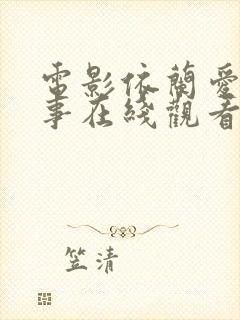 電影依蘭愛
事在綫觀看
笠清